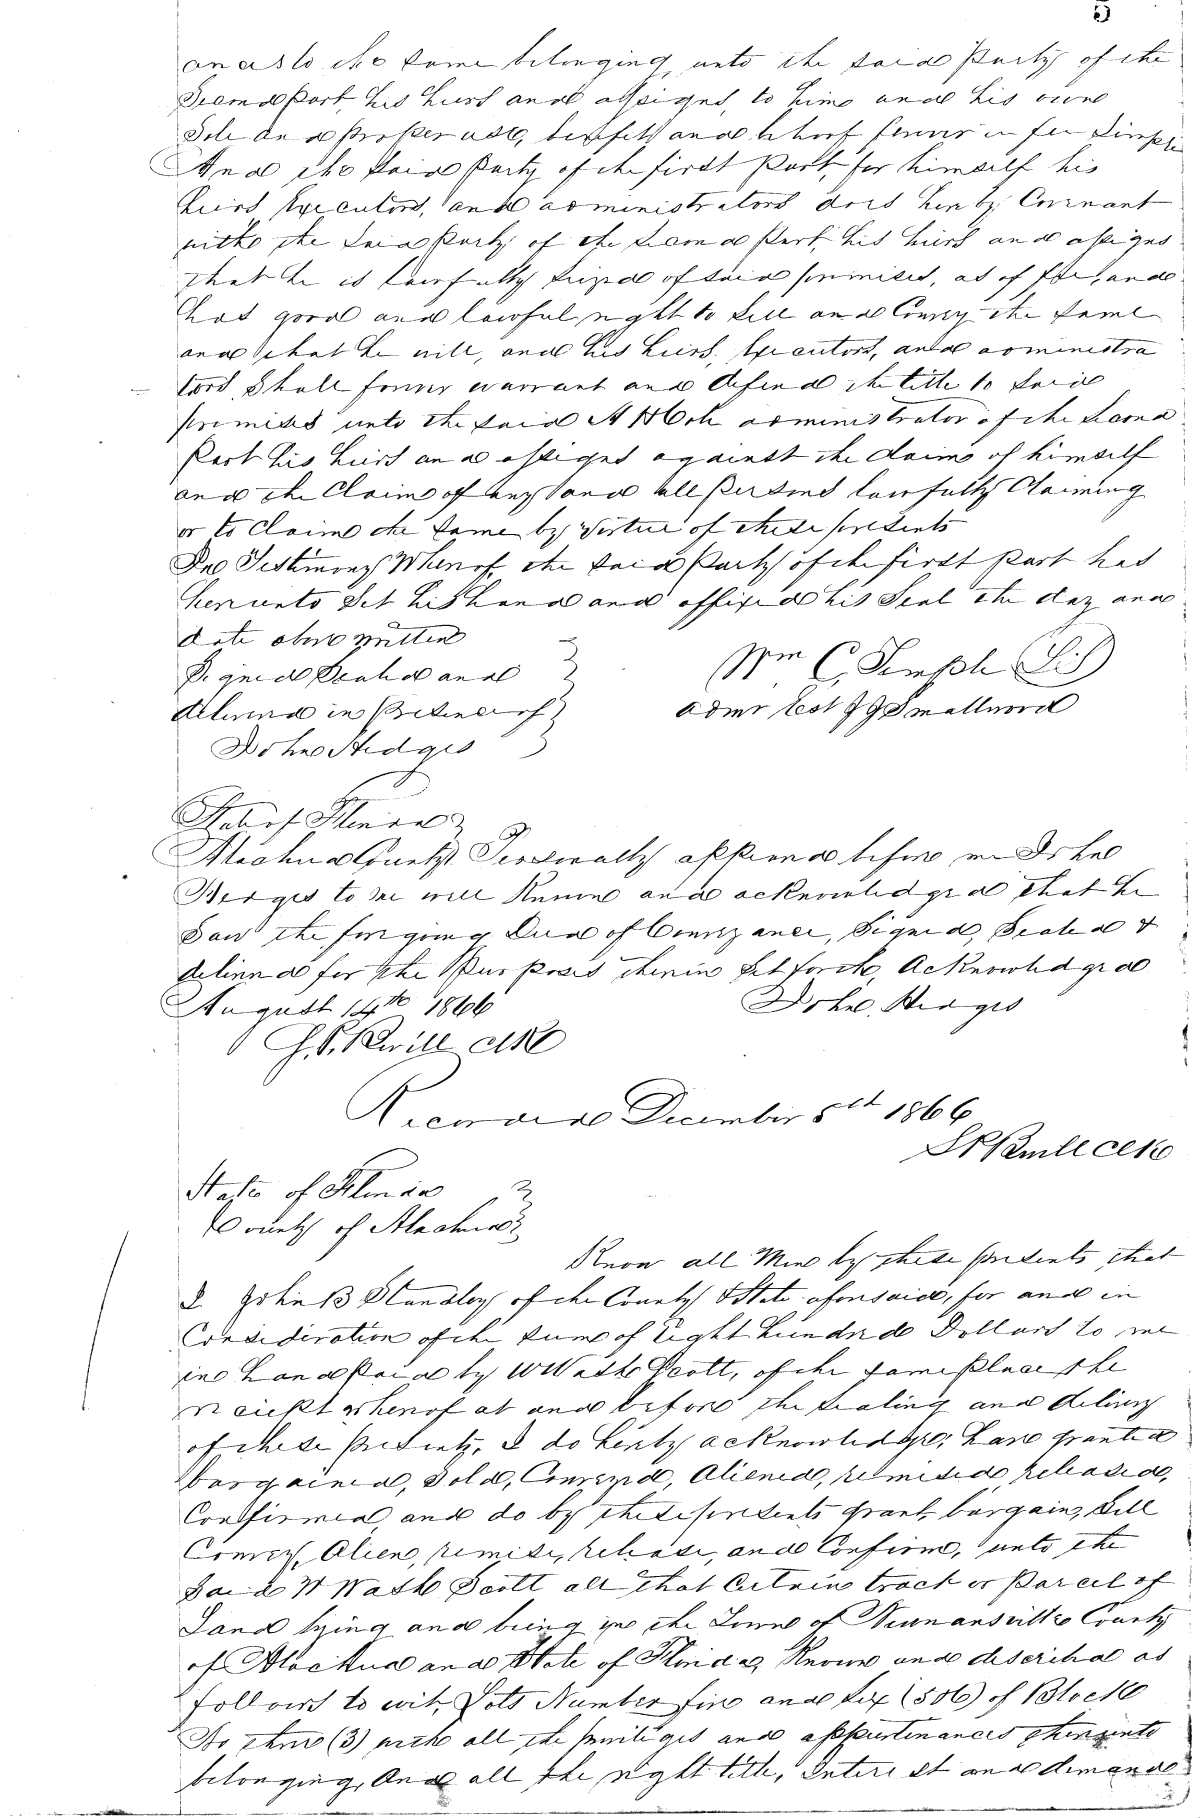 5
ances to the same belonging, unto the said Party of the
Second Part his heirs and assigns, to him and his own
Sole and proper use, benefit and behoof forever in fee Simple
And the said Party of the first Part, for himself his
heirs, Executors, and administrators does hereby Covenant
with the said Party of the second Part, his heirs and assigns
that he is lawfully seized of said premises, as of fee, and
has good and lawful right to sell and Convey the same
and that he will, and his heirs, Executors, and administra
tors Shall forever warrant and defend the title to said
premises unto the said A administrator of the second
Part his heirs and assigns against the claims of himself
and the Claims of any and all Persons lawfully Claiming
or to Claim the same by Virtue of these presents
In Testimony Whereof, the said Party of the first Part has
hereunto Set his hand and affixed his Seal the day and
date above written
Signed Sealed and
delivered in Presence of
Wm C. Semple (LS)
admr est J G Smallwood
John Hedges
State of Florida
Alachua County Personally appeared before me John
Hedges to me well Known and acknowledged that he
Saw the foregoing Deed of Conveyance, Signed, Sealed &
delivered for the Purposes therein Set forth, Acknowledged
August 14th 1866
John Hedges
Clk
Recorded December 5th 1866
Clk
State of Florida
County of Alachua
Know all Men by these presents that
I John B Standley of the County & State aforesaid, for and in
Consideration of the sum of Eight hundred Dollars to me
in hand Paid by W Wash Scott, of the same place, the
receipt whereof at and before the sealing and delivery
of these presents, I do hereby acknowledge, have granted
bargained, Sold, Conveyed, Aliened, remised, released,
Confirmed, and do by these presents grant, bargain, Sell
Convey, Alien, remise, release, and Confirm, unto the
Said W Wash Scott all that Certain tract or Parcel of
Land lying and being in the Town of Newnansville County
of Alachua and State of Florida, Known and described as
follows to wit, Lots Number five and six (5 & 6) of Block
No three (3) with all the privileges and appurtenances thereunto
belonging, And all the right title, Interest and demand